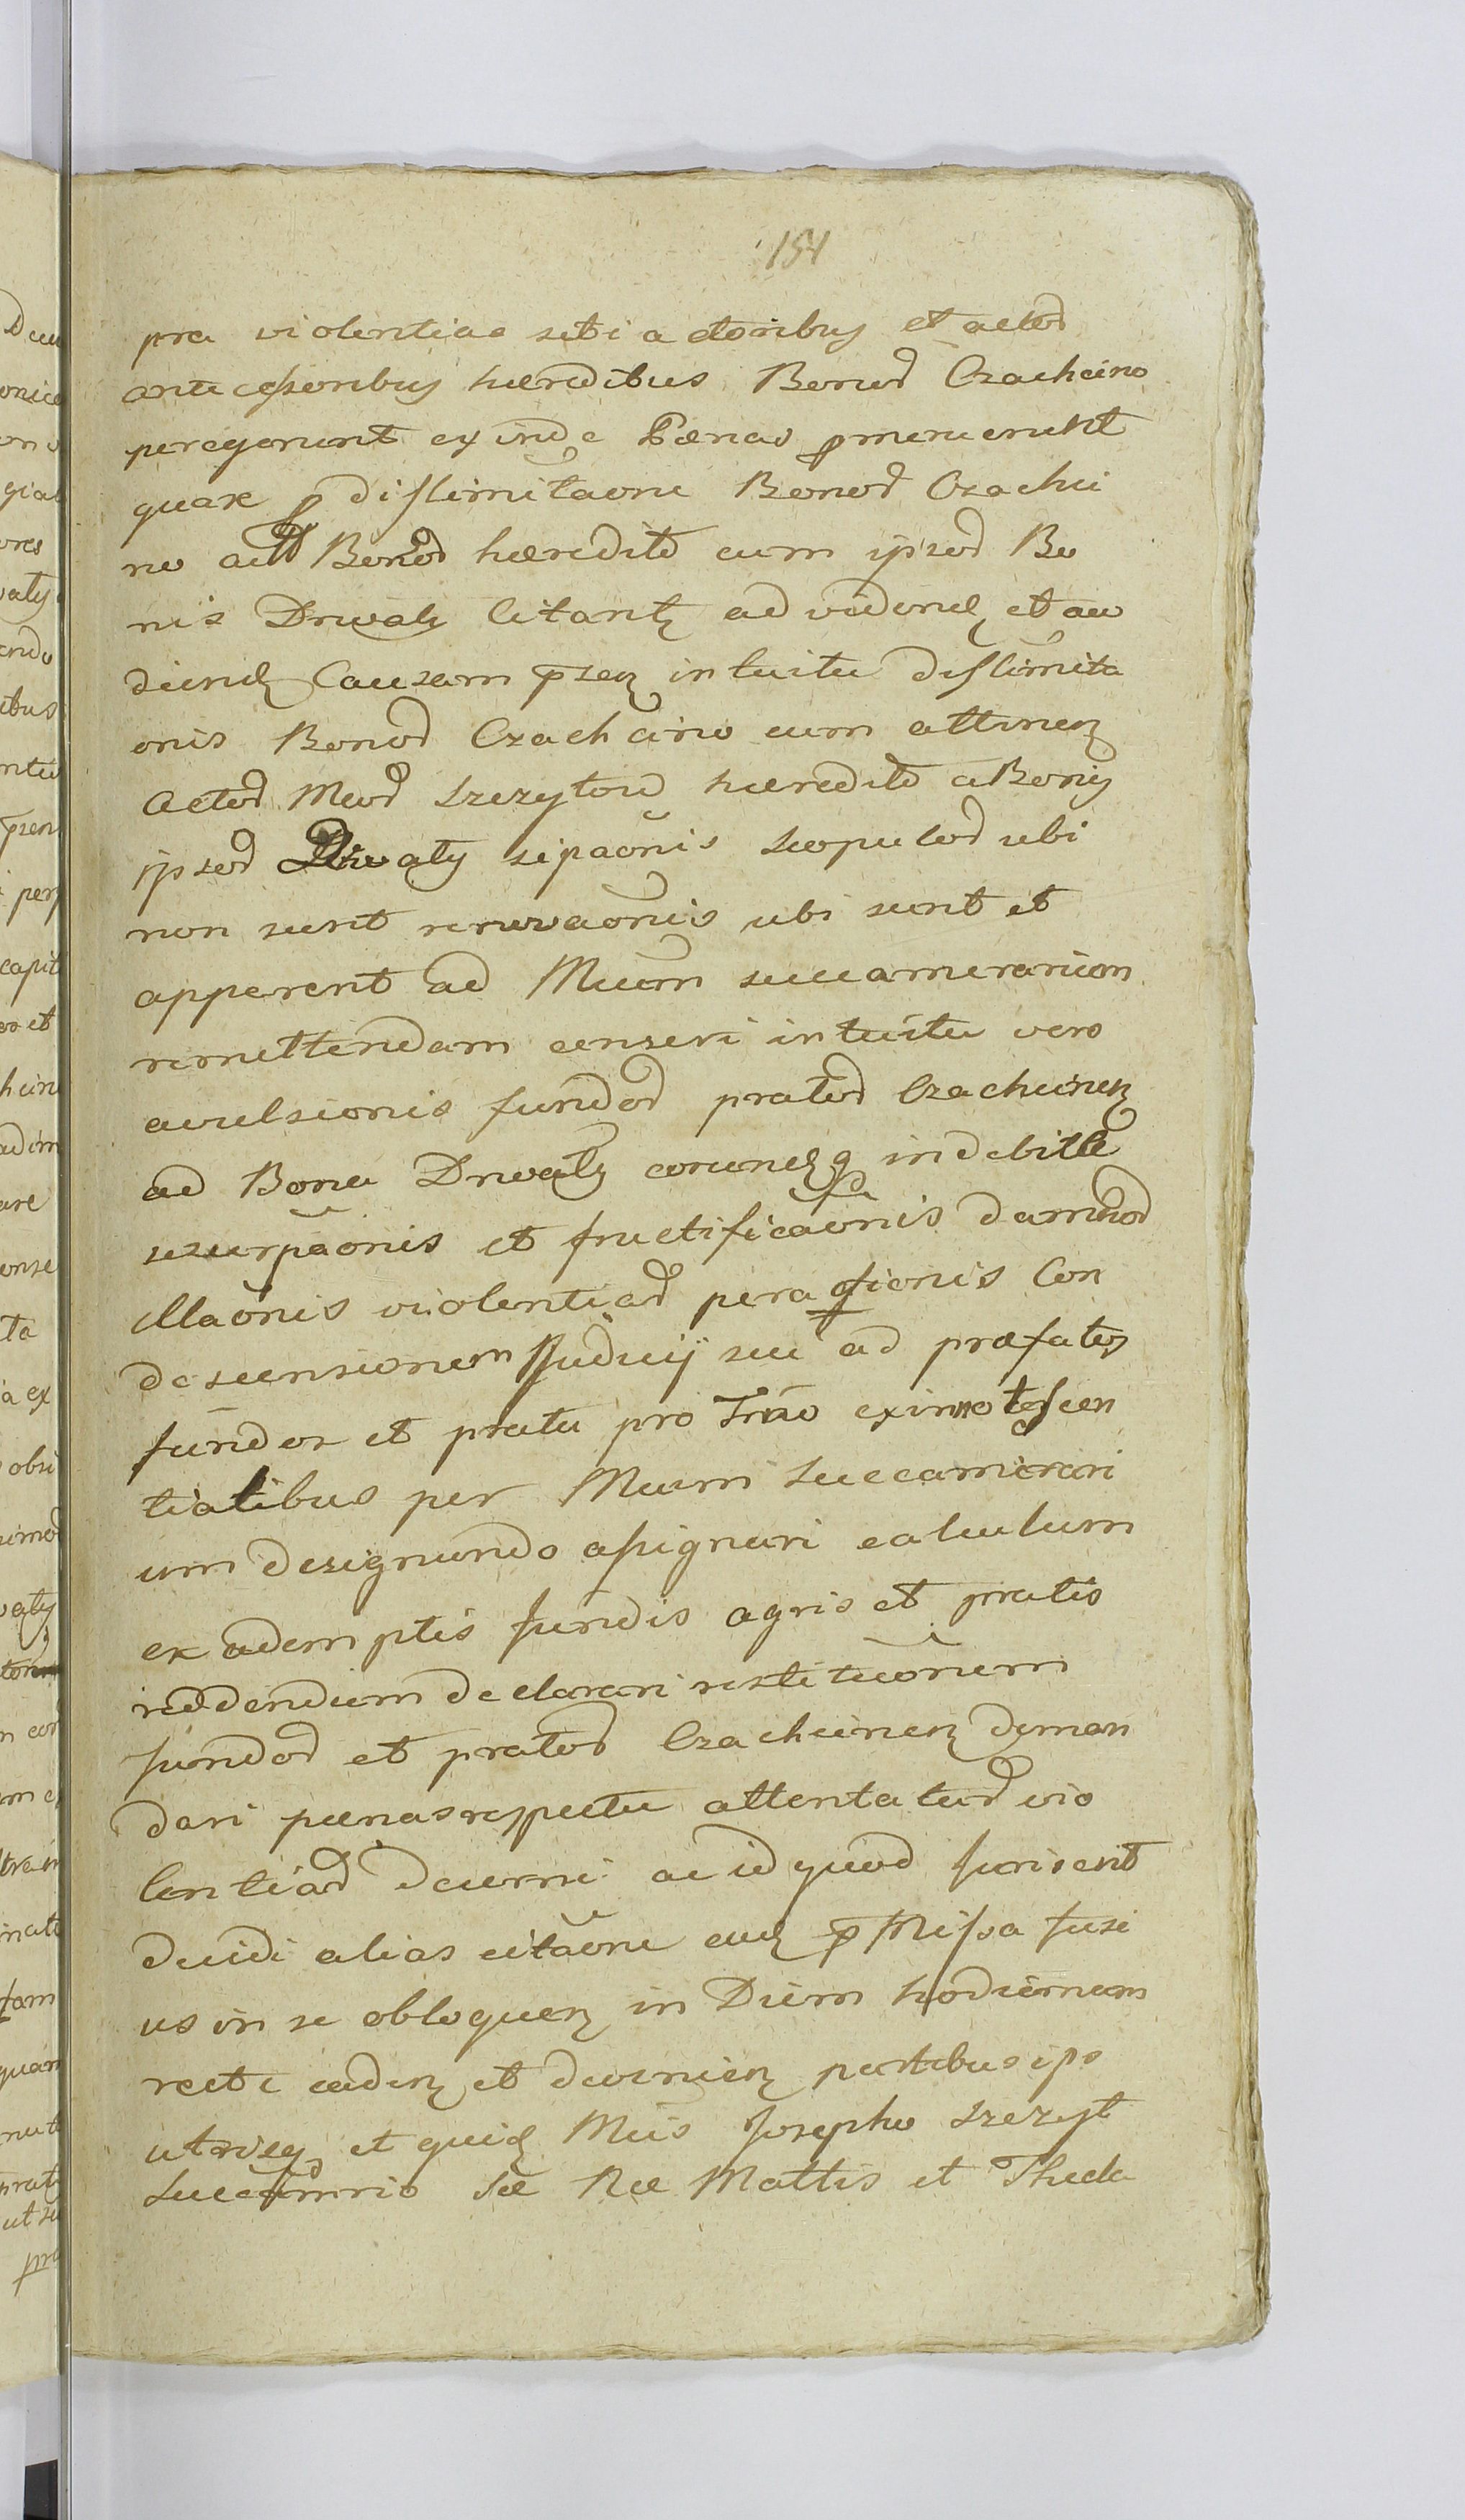 154
pra violentias sibi a ctoribus et actod
antecessoribus hæredibus Bonod Czachcino
peregerunt exinde Pænas pmeruerunt
quare p dislimitaone Bonod Czachci
no actt Bonod hæredite cum ipsod Bo
nis Drwały Citantz ad videndz et au
diendz Causam psenz intuitu dislimita
onis Bonod Czachcino cum attinenz
Actod Mcod Szczytow hæredite a Bonis
ipsod Drwały sipaonis Scopulod ubi
non sunt renovaonis ubi sunt et
apperent ad Mcum succamerarium
remittendam censeri intuitu vero
avulsionis fundod pratod Czachcinenz
ad Bona Drwały eorundzq indebitte
usurpaonis et fructificaonis damnod
illaonis violentiad peractionis Con
descensionem Judicij sui ad præfatos
fundos et prata pro Trno exinnotescen
tialibus per Mcum Succamerari
um designando assignari calculum
ex ademptis fundis agris et pratis
reddendum declarari restituonem
fundod et pratod Czachcinenz deman
dari pænas respectu attentatud vio
lentiad decerni ac id quod Juris erit
decidi alias citaone eadz pMissa fusi
us in se obloquenz in Diem hodiernam
recte cadenz et devenienz partibus ips
utrisq et quidz Mcis Josepho Szczyt
Succamrio Sæ Ræ Mattis et Thecla